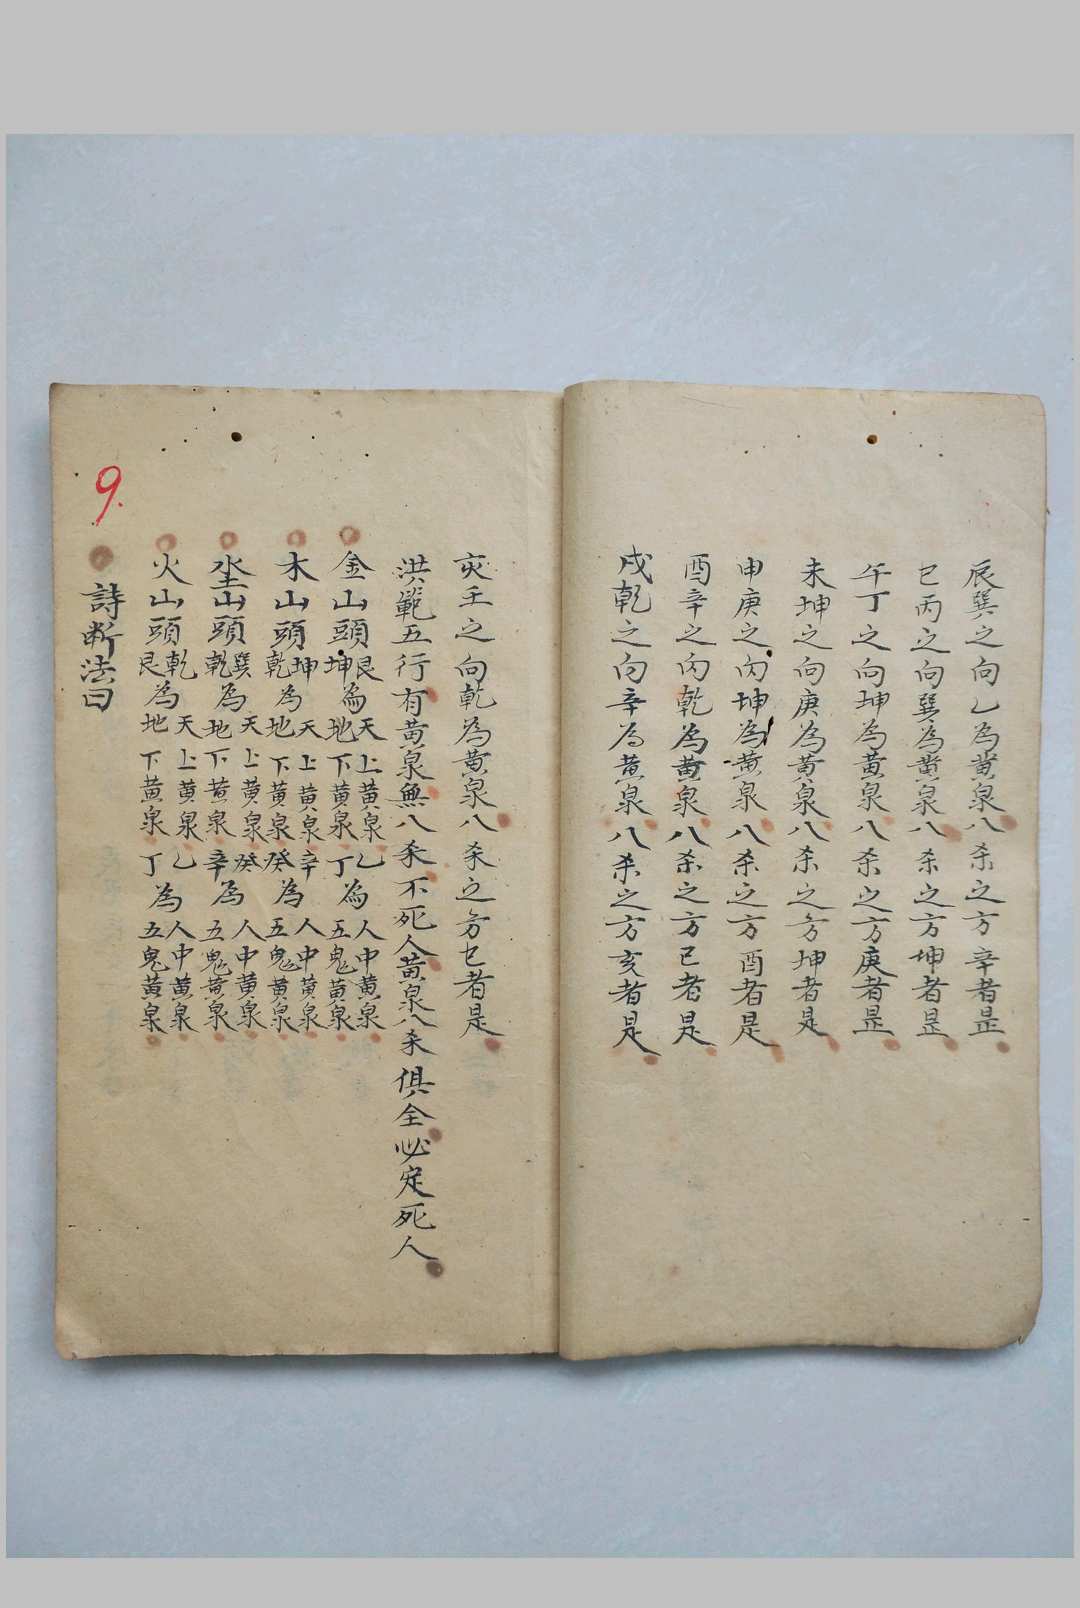 辰巽之向乙為黄泉八杀之方辛者是
巳丙之向巽為黄泉八杀之方坤者是
午丁之向坤為黄泉八杀之方庚者是
未坤之向庚為黄泉八杀之方坤者是
申庚之向坤為黄泉八杀之方酉者是
酉辛之向乾為黄泉八杀之方巳者是
戌乾之向辛為黄泉八杀之方亥者是
亥壬之向乾為黄泉八杀之方巳者是
洪範五行有黄泉無八杀不死人黄泉八杀俱全必定死人
金山頭艮坤為天上黄泉地下黄泉乙丁為人中黄泉五鬼黄泉
木山頭坤乾為天上黄泉地下黄泉辛癸為人中黄泉五鬼黄泉
水土山頭巽乾為天上黄泉地下黄泉癸辛為人中黄泉五鬼黄泉
火山頭乾艮為天上黄泉地下黄泉乙丁為人中黄泉五鬼黄泉
詩断法曰
9.